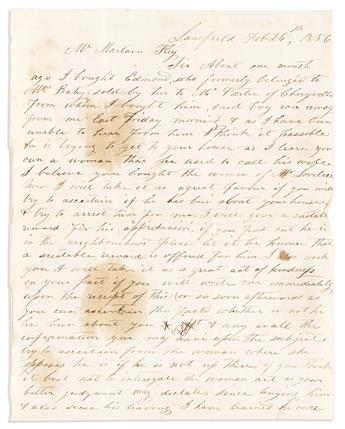 Lanefield Feb 26th, 1856
Mr Marlann Key
Sir About one month
ago I bought Edmond, who formerly belonged to
Mrs Bahy, sold by her to Mr Porter of
from whom I bought him, said boy ran away
from me last Friday morning & as I have been
unable to hear from him I think it possable
he is trying to get to your house as I learn you
own a woman that he used to call his wife
I believe you bought the woman of Mr Lovelace
Now I will take it as a great favour if you will
try to ascertain if he has bin about your house,
& try to arrest him for me. I will give a suitable
reward for his apprehension, if you find out he is
in the neighbourhood please let it be known that
a suitable reward is offered for him. I also wish
you & will take it as a great act of kindness
on your part if you will write me immediately
upon the receipt of this (or so soon afterward as
you can ascertain the facts whether or not he
has bin about you & any & all the
information you may have upon the subject
try to ascertain from the woman where she
supposes he is if he is not up there, if you think
it best not to interogate the woman act as your
better judgment may dictate since buying him
& also since his leaving I have learned he once